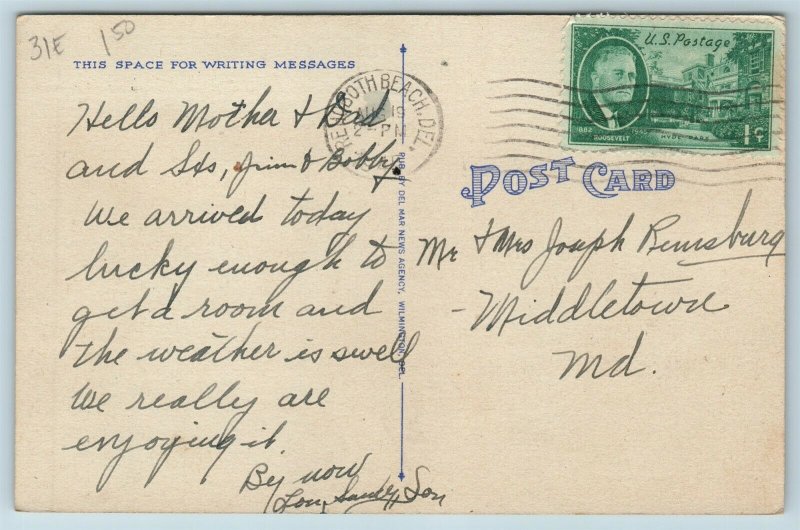 31E 1.50
THIS SPACE FOR WRITING MESSAGES
Hello Mother & Dad
and Sis, Jim & Bobby
We arrived today
lucky enough to
get a room and
the weather is swell
We really are
enjoying it.
By now
Son
PUB. BY DEL MAR NEWS AGENCY, WILMINGTON, DEL.
REHOBOTH BEACH, DEL.
19
2 - PM
U.S. Postage
1882 1945
ROOSEVELT HYDE PARK
1¢
POST CARD
Mr & Mrs Joseph Remsburg
Middletown
Md.